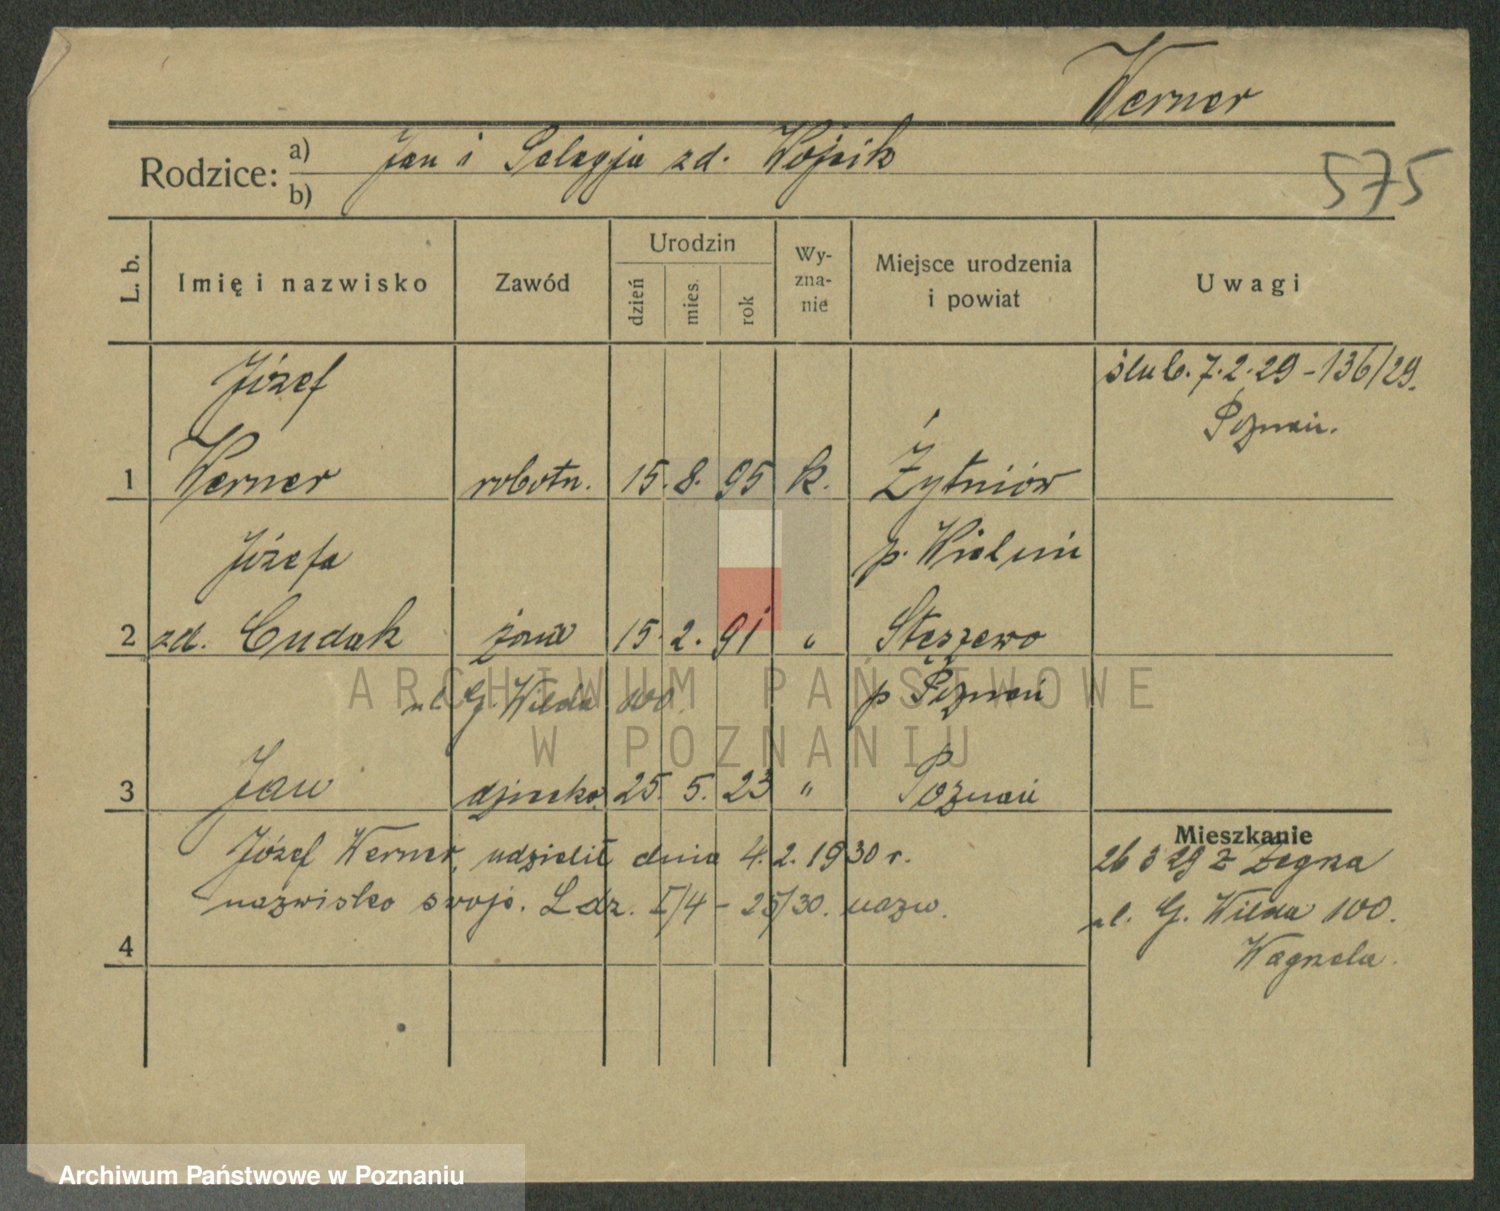 Werner
Rodzice: a) Jan i Pelagja zd. Wojcik
b)
575
L. b. Imię i nazwisko Zawód Urodzin dzień mies. rok Wyznanie Miejsce urodzenia i powiat Uwagi
Józef ślub. 7.2.29 - 136/29.
Poznań.
1 Werner robotn. 15. 8. 95 k. Żytniów
Józefa p. Wieluń
2 zd. Cudak żona 15. 2. 91 " Stęszewo
ul. G. Wilda 100. p. Poznań
3 Jan dziecko 25. 5. 23 " Poznań
Mieszkanie
Józef Werner, udzielił dnia 4.2.1930 r. 26 3 29 z Żegrza
nazwisko swoje. L dz. I/4 - 25/30. nazw. ul. G. Wilda 100.
4 Wagnela.
ARCHIWUM PAŃSTWOWE
W POZNANIU
Archiwum Państwowe w Poznaniu